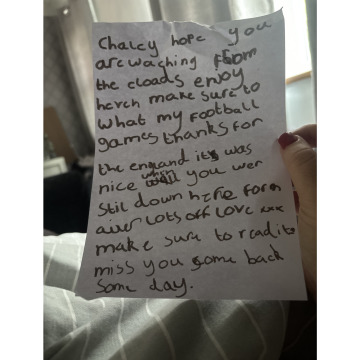 Chaley hope you
are waching from
the cloads enjoy
heven make sure to
What my football
games thanks for
the england it was
nice when you wer
Stil down here form
aver Lots off Love xxx
make sure to read it
miss you some back
Some day.